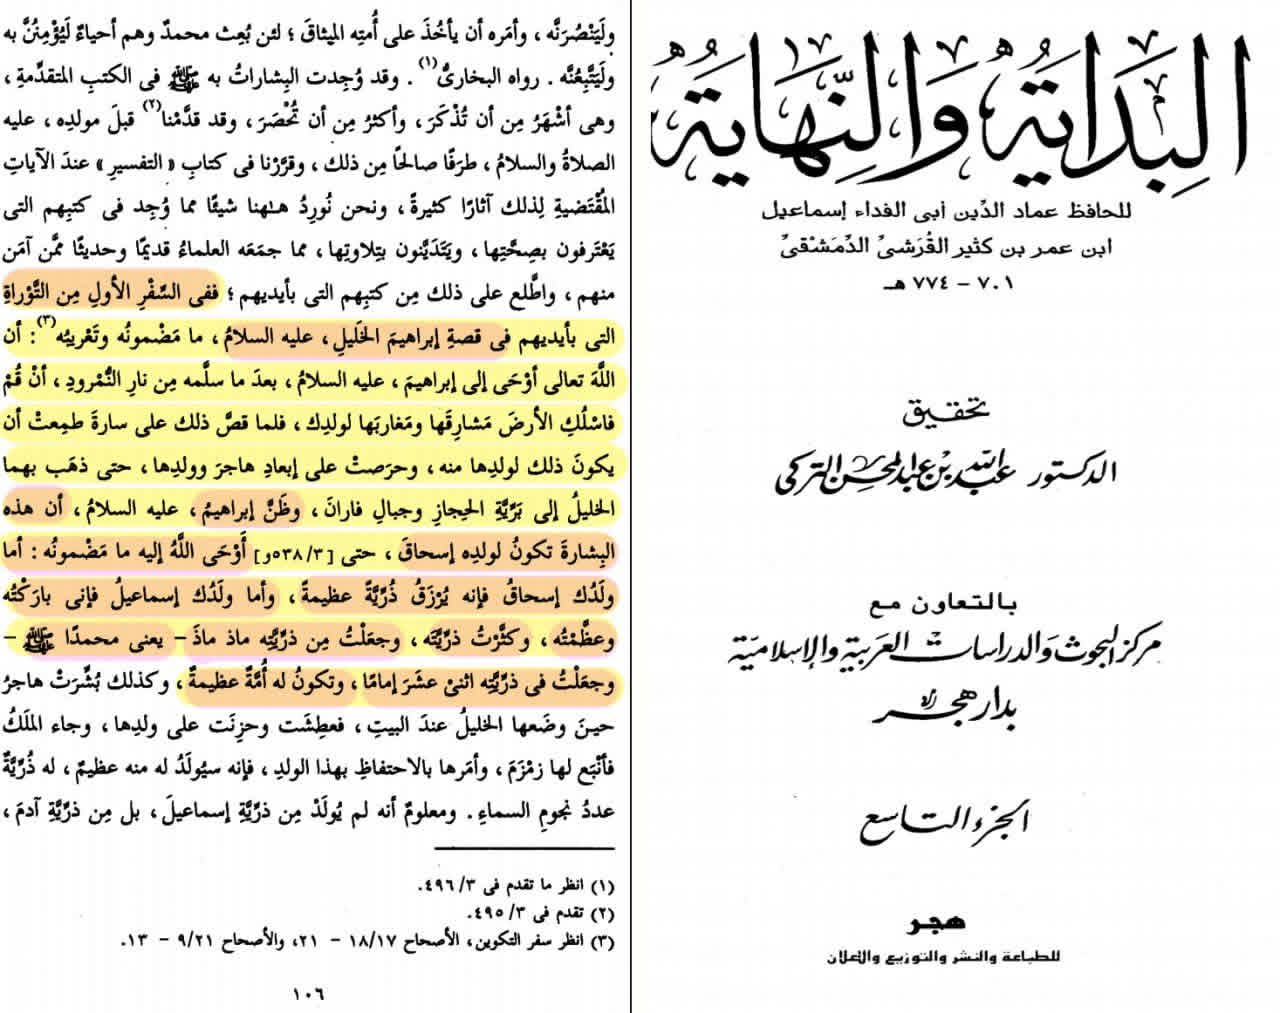 البداية والنهاية
للحافظ عماد الدِّين أبى الفداء إسماعيل
ابن عمر بن كثير القُرَشىِّ الدِّمَشْقىِّ
٧٠١ - ٧٧٤ هـ
تحقيق
الدكتور عبد الله بن عبد المحسن التركى
بالتعاون مع
مركز البحوث والدراسات العربية والإسلامية
بدار هجر
الجزء التاسع
هجر
للطباعة والنشر والتوزيع والإعلان
ولَيَنْصُرَنَّه ، وأمَره أن يأخُذَ على أُمتِه الميثاقَ ؛ لئن بُعِث محمدٌ وهم أحياءٌ لَيُؤْمِنُنَّ به
ولَيَتَّبِعُنَّه . رواه البخارىُّ(١) . وقد وُجِدت البِشاراتُ به ﷺ فى الكتبِ المتقدِّمةِ ،
وهى أشْهَرُ مِن أن تُذْكَرَ ، وأكثرُ مِن أن تُحْصَرَ ، وقد قدَّمْنا(٢) قبلَ مولدِه ، عليه
الصلاةُ والسلامُ ، طرَفًا صالحًا مِن ذلك ، وقرَّرْنا فى كتابِ « التفسيرِ » عندَ الآياتِ
المُقْتَضيةِ لِذلك آثارًا كثيرةً ، ونحن نُورِدُ هـٰهنا شيئًا مما وُجِد فى كتبِهم التى
يَعْتَرفون بصِحَّتِها ، ويَتَدَيَّنون بتِلاوتِها ، مما جمَعَه العلماءُ قديمًا وحديثًا ممَّن آمَن
منهم ، واطَّلع على ذلك مِن كتبِهم التى بأيديهم ؛ ففى السِّفْرِ الأولِ مِن التَّوْراةِ
التى بأيديهم فى قصةِ إبراهيمَ الخَليلِ ، عليه السلامُ ، ما مَضْمونُه وتَعْريبُه(٣) : أن
اللَّهَ تعالى أوْحَى إلى إبراهيمَ ، عليه السلامُ ، بعدَ ما سلَّمه مِن نارِ النُّمْرودِ ، أنْ قُمْ
فاسْلُكِ الأرضَ مَشارِقَها ومَغاربَها لولدِك ، فلما قصَّ ذلك على سارةَ طمِعتْ أن
يكونَ ذلك لولدِها منه ، وحرَصتْ على إبعادِ هاجرَ وولدِها ، حتى ذهَب بهما
الخليلُ إلى بَرِّيَّةِ الحِجازِ وجبالِ فارانَ ، وظَنَّ إبراهيمُ ، عليه السلامُ ، أن هذه
البِشارةَ تكونُ لولدِه إسحاقَ ، حتى [٥٣٨/٣و] أَوْحَى اللَّهُ إليه ما مَضْمونُه : أما
ولَدُك إسحاقُ فإنه يُرْزَقُ ذُرِّيَّةً عظيمةً ، وأما ولَدُك إسماعيلُ فإنى بارَكْتُه
وعظَّمْتُه ، وكثَّرْتُ ذرِّيَّتَه ، وجعَلْتُ مِن ذرِّيَّتِه ماذ ماذَ – يعنى محمدًا ﷺ –
وجعَلْتُ فى ذرِّيَّتِه اثنىْ عشَرَ إمامًا ، وتكونُ له أُمَّةٌ عظيمةٌ ، وكذلك بُشِّرَتْ هاجرُ
حينَ وضَعها الخليلُ عندَ البيتِ ، فعطِشَت وحزِنَت على ولدِها ، وجاء الملَكُ
فأنْبَع لها زمْزَمَ ، وأمَرها بالاحتفاظِ بهذا الولدِ ، فإنه سيُولَدُ له منه عظيمٌ ، له ذُرِّيَّةٌ
عددُ نجومِ السماءِ . ومعلومٌ أنه لم يُولَدْ مِن ذرِّيَّةِ إسماعيلَ ، بل مِن ذرِّيَّةِ آدمَ ،
(١) انظر ما تقدم فى ٤٩٦/٣.
(٢) تقدم فى ٤٩٥/٣.
(٣) انظر سفر التكوين، الأصحاح ١٨/١٧ – ٢١، والأصحاح ٩/٢١ – ١٣.
١٠٦